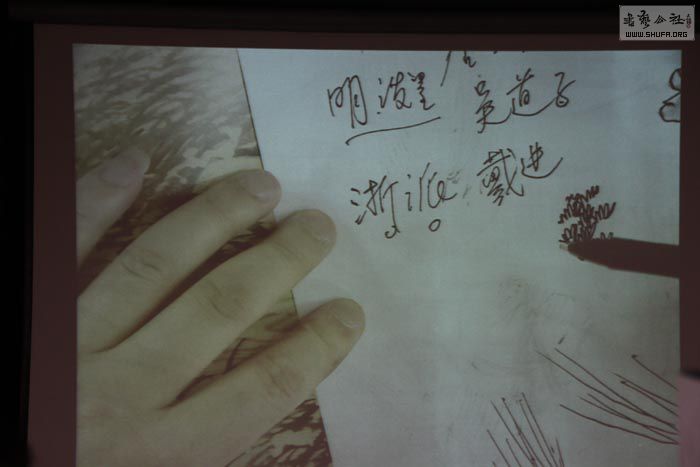 書藝公社
WWW.SHUFA.ORG
明 泼墨 吴道子
浙派 戴进